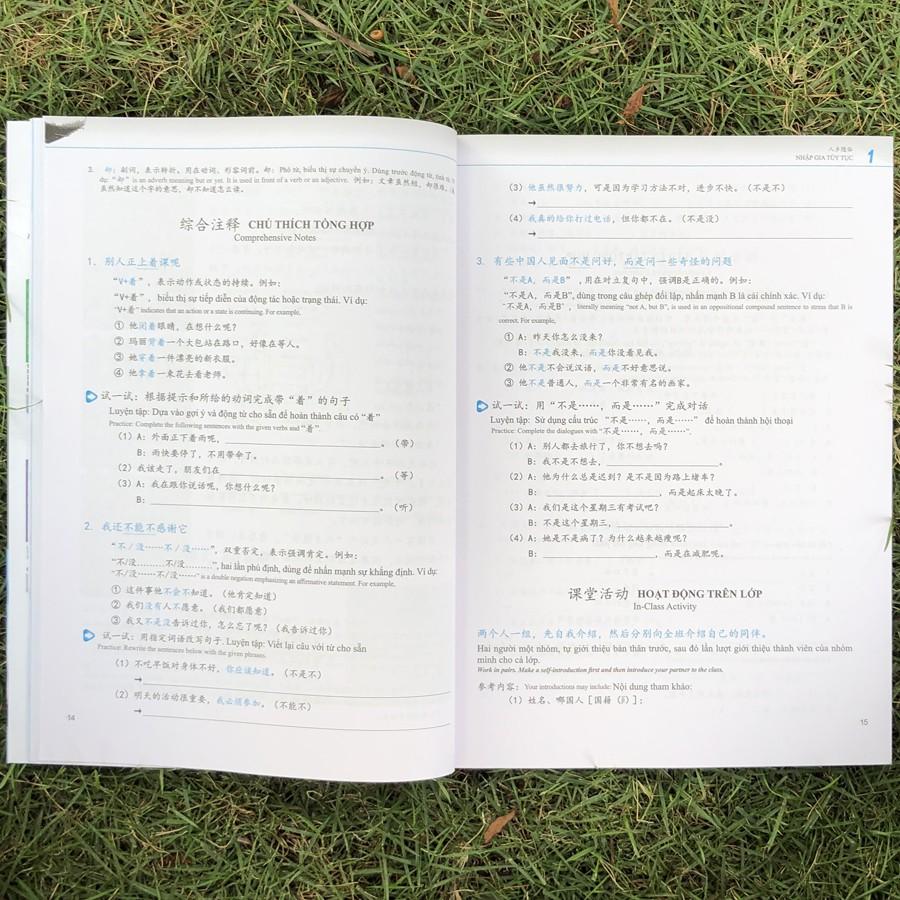 3. 却：副词，表示转折。用在动词、形容词前。却：Phó từ, biểu thị sự chuyển ý. Dùng trước động từ, tính từ. Ví
dụ: "却" is an adverb meaning but or yet. It is used in front of a verb or an adjective. 例如：文章虽然短，却很难。
虽然知道这个字的意思，却不知道怎么读。
综合注释 CHÚ THÍCH TỔNG HỢP
Comprehensive Notes
1. 别人正上着课呢
“V+着”，表示动作或状态的持续。例如：
“V+着”，biểu thị sự tiếp diễn của động tác hoặc trạng thái. Ví dụ:
“V+着” indicates that an action or a state is continuing. For example,
① 他闭着眼睛，在想什么呢？
② 玛丽背着一个大包站在路口，好像在等人。
③ 她穿着一件漂亮的新衣服。
④ 他拿着一束花去看老师。
试一试：根据提示和所给的动词完成带“着”的句子
Luyện tập: Dựa vào gợi ý và động từ cho sẵn để hoàn thành câu có “着”
Practice: Complete the following sentences with the given verbs and “着”.
（1）A：外面正下着雨呢，____。（带）
B：雨快要停了，不用带伞了。
（2）我该走了，朋友们在____。（等）
（3）A：我在跟你说话呢，你想什么呢？
B：____。（听）
2. 我还不能不感谢它
“不 / 没……不 / 没……”，双重否定，表示强调肯定。例如：
“不/没………不/没………”, hai lần phủ định, dùng để nhấn mạnh sự khẳng định. Ví dụ:
“不/没……不/没……” is a double negation emphasizing an affirmative statement. For example,
① 这件事他不会不知道。（他肯定知道）
② 我们没有人不愿意。（我们都愿意）
③ 我又不是没告诉过你，怎么忘了呢？（我告诉过你）
试一试：用指定词语改写句子 Luyện tập: Viết lại câu với từ cho sẵn
Practice: Rewrite the sentences below with the given phrases.
（1）不吃早饭对身体不好，你应该知道。（不是不）
→
（2）明天的活动很重要，我必须参加。（不能不）
→
14
入乡随俗
NHẬP GIA TÙY TỤC 1
（3）他虽然很努力，可是因为学习方法不对，进步不快。（不是不）
→
（4）我真的给你打过电话，但你都不在。（不是没）
→
3. 有些中国人见面不是问好，而是问一些奇怪的问题
“不是A，而是B”，用在对立复句中，强调B是正确的。例如：
“不是A，而是B”, dùng trong câu ghép đối lập, nhấn mạnh B là cái chính xác. Ví dụ:
“不是A，而是B”, literally meaning “not A, but B”, is used in an oppositional compound sentence to stress that B is
correct. For example,
① A：昨天你怎么没来？
B：不是我没来，而是你没看见我。
② 他不是不会说汉语，而是不好意思说。
③ 他不是普通人，而是一个非常有名的画家。
试一试：用“不是……，而是……”完成对话
Luyện tập: Sử dụng cấu trúc “不是……，而是……” để hoàn thành hội thoại
Practice: Complete the dialogues with “不是……，而是……”.
（1）A：别人都去旅行了，你不想去吗？
B：我不是不想去，____。
（2）A：他为什么总是迟到？是不是因为路上堵车？
B：____，而是起床太晚了。
（3）A：我们是这个星期三有考试吧？
B：不是这个星期三，____。
（4）A：她是不是病了？为什么越来越瘦呢？
B：____，而是在减肥呢。
课堂活动 HOẠT ĐỘNG TRÊN LỚP
In-Class Activity
两个人一组，先自我介绍，然后分别向全班介绍自己的同伴。
Hai người một nhóm, tự giới thiệu bản thân trước, sau đó lần lượt giới thiệu thành viên của nhóm
mình cho cả lớp.
Work in pairs. Make a self-introduction first and then introduce your partner to the class.
参考内容：Your introductions may include: Nội dung tham khảo:
（1）姓名、哪国人［国籍（jí）］；
15